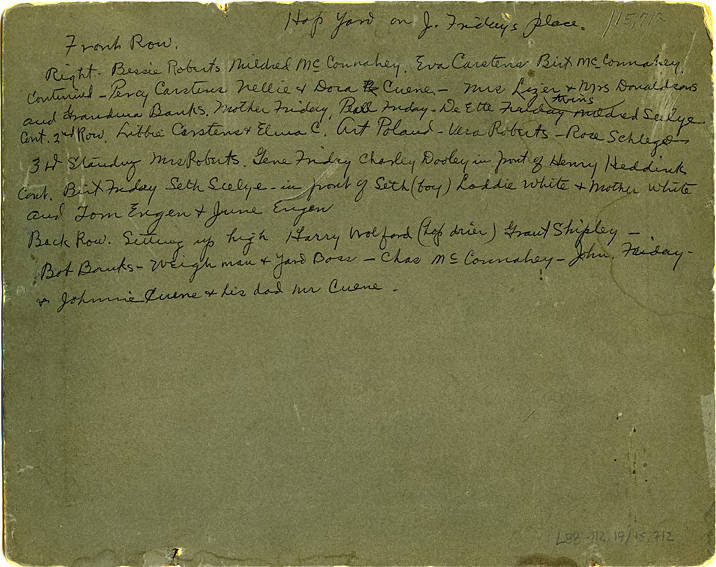 Hop Yard on J. Friday's place. 15,712
Front Row.
Right - Bessie Roberts Mildred McConnahey, Eva Carstens Birt McConnahey,
Continued - Percy Carstens Nellie & Dora Cuene - Mrs Lizer & Mrs Donaldsons twins
and Grandma Banks, Mother Friday, Ball Friday - De Ette Friday Mildred Seelye
Cont. 2nd Row. Libbie Carstens & Elma C. Art Poland - Vera Roberts - Rose Schlegel
3rd Standing Mrs Roberts, Gene Friday Charley Dooley in front of Henry Heddink
Cont. Birt Friday Seth Seelye - in front of Seth (boy) Laddie White & Mother White
and Tom Engen & June Engen
Back Row. Sitting up high Harry Wolford (hop drier) Grant Shipley -
Bob Banks - Weigh man & Yard Boss - Chas McConnahey - John Friday -
& Johnnie Cuene & his dad Mr Cuene -
L82-112.19/15,712